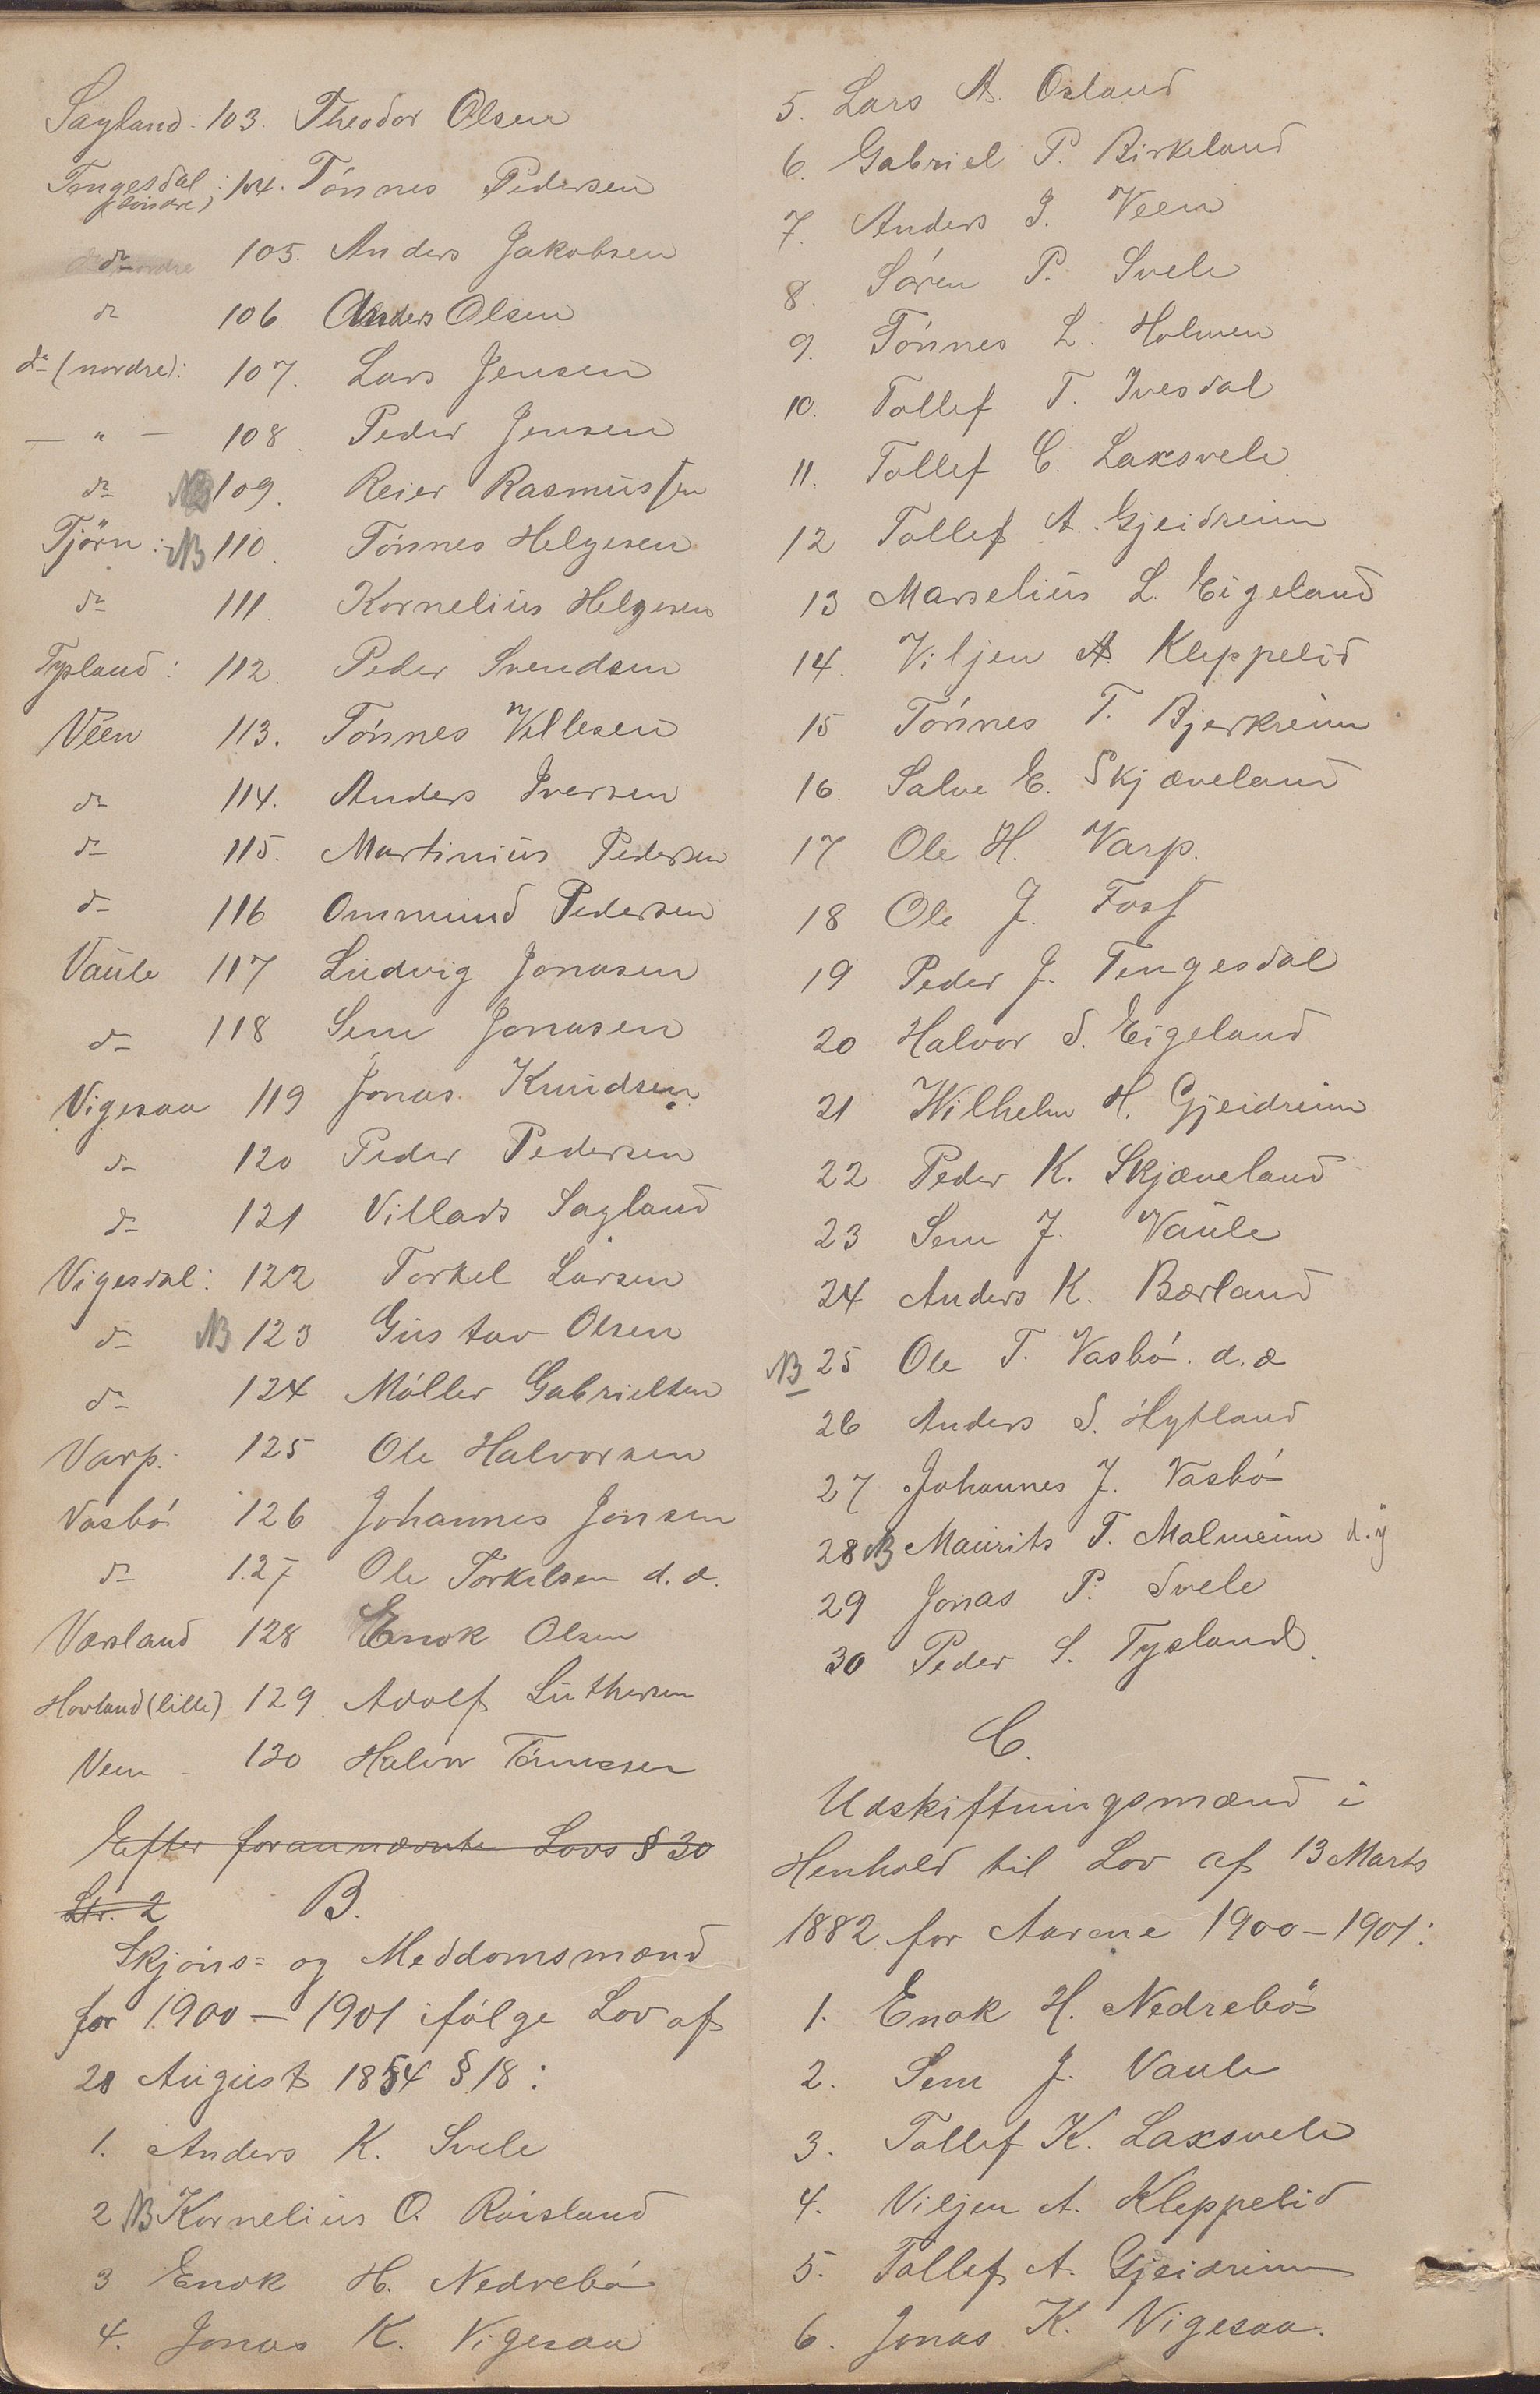 Sagland: 103. Theodor Olsen
Tengesdal (söndre): 104. Tönnes Pedersen
do 105. Anders Jakobsen
do 106. Anders Olsen
do (nordre): 107. Lars Jensen
— " — 108. Peder Jensen
do NB 109. Reier Rasmussen
Tjörn: NB 110. Tönnes Helgesen
do 111. Kornelius Helgesen
Tysland: 112. Peder Svendsen
Véen 113. Tönnes Villesen
do 114. Anders Iversen
do 115. Martinius Pedersen
do 116 Ommund Pedersen
Vaule 117 Ludvig Jonasen
do 118 Sem Jonasen
Vigesaa 119 Jonas Knudsen
do 120 Peder Pedersen
do 121 Villads Sagland
Vigesdal: 122 Torkel Larsen
do NB 123 Gustav Olsen
do 124 Möller Gabrielsen
Varp: 125 Ole Halvorsen
Vasbö 126 Johannes Jonsen
do 127 Ole Torkelsen d.æ.
Varsland 128 Enok Olsen
Hovland (lille) 129 Adolf Luthersen
Veen 130 Halvor Tönnesen
Efter forannævnte Lovs § 30
Ltr. 2 B.
Skjöns= og Meddomsmænd
for 1900 — 1901 ifölge Lov af
28 August 1854 § 18:
1. Anders K. Svele
2 NB Kornelius O. Röisland
3 Enok H. Nedrebö
4. Jonas K. Vigesaa
5. Lars A. Osland
6. Gabriel P. Birkeland
7. Anders I. Veen
8. Sören P. Svele
9. Tönnes L. Holmen
10. Tollef T. Ivesdal
11. Tollef C. Laksvele
12 Tollef A. Gjeidreim
13 Marselius L. Eigeland
14. Viljen A. Kleppelid
15 Tönnes T. Bjerkreim
16. Salve E. Skjæveland
17 Ole H. Varp.
18 Ole J. Foss
19 Peder J. Tengesdal
20 Halvor S. Eigeland
21 Wilhelm H. Gjeidreim
22 Peder K. Skjæveland
23 Sem J. Vaule
24 Anders K. Bærland
NB 25 Ole T. Vasbö. d.æ
26 Anders S. Hytland
27 Johannes J. Vasbö
28 NB Maurits T. Malmeim d.y
29 Jonas P. Svele
30 Peder S. Tysland.
C.
Udskiftningsmænd i
Henhold til Lov af 13 Marts
1882 for Aarene 1900-1901:
1. Enok H. Nedrebö
2. Sem J. Vaule
3. Tollef K. Laxsvele
4. Viljen A. Kleppelid
5. Tollef A. Gjeidreim
6. Jonas K. Vigesaa.